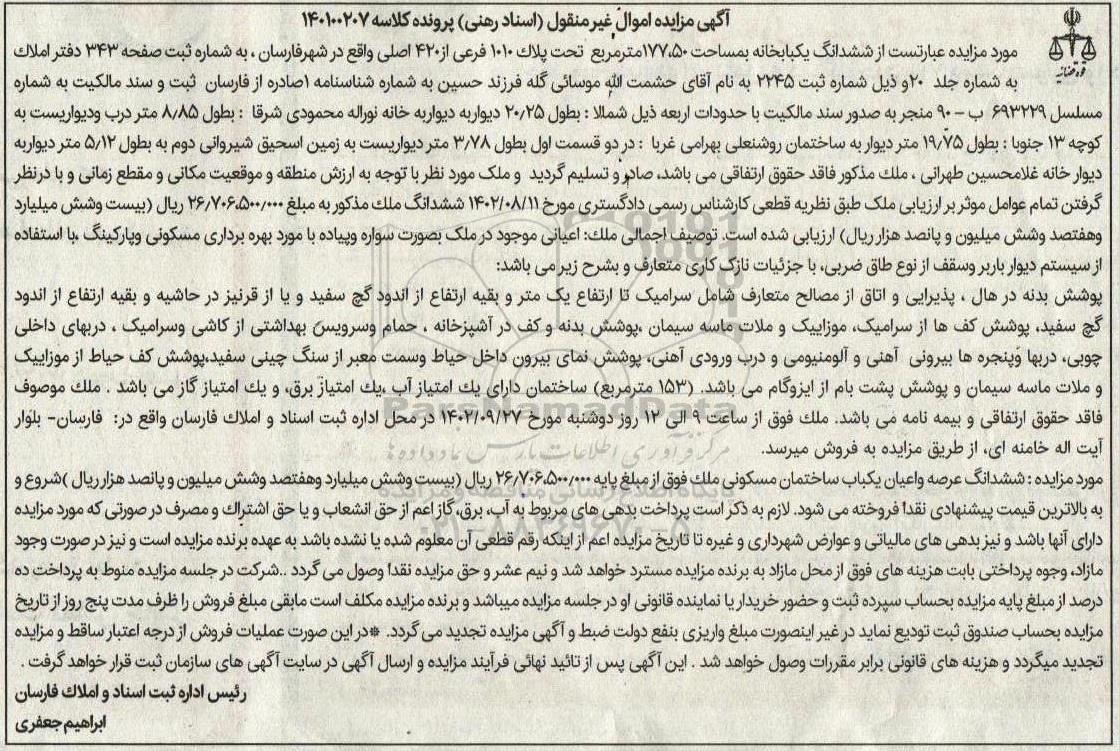 آگهی مزایده اموال غیرمنقول (اسناد رهنی) پرونده کلاسه ۱۴۰۱۰۰۲۰۷
قوه قضائیه
مورد مزایده عبارتست از ششدانگ یکبابخانه بمساحت ۱۷۷.۵۰مترمربع تحت پلاك ۱۰۱۰ فرعی از۴۲۰ اصلی واقع در شهرفارسان ، به شماره ثبت صفحه ۳۴۳ دفتر املاك
به شماره جلد ۲۰و ذیل شماره ثبت ۲۲۴۵ به نام آقای حشمت الله موسائی گله فرزند حسین به شماره شناسنامه ۱صادره از فارسان ثبت و سند مالکیت به شماره
مسلسل ۶۹۳۲۲۹ ب – ۹۰ منجر به صدور سند مالکیت با حدودات اربعه ذیل شمالا : بطول ۲۰.۲۵ دیواربه دیواربه خانه نوراله محمودی شرقا : بطول ۸/۸۵ متر درب ودیواریست به
کوچه ۱۳ جنوبا : بطول ۱۹.۷۵ متر دیوار به ساختمان روشنعلی بهرامی غربا : در دو قسمت اول بطول ۳.۷۸ متر دیواریست به زمین اسحیق شیروانی دوم به بطول ۵.۱۲ متر دیواربه
دیوار خانه غلامحسین طهرانی ، ملك مذکور فاقد حقوق ارتفاقی می باشد، صادر و تسلیم گردید و ملک مورد نظر با توجه به ارزش منطقه و موقعیت مکانی و مقطع زمانی و با درنظر
گرفتن تمام عوامل موثر بر ارزیابی ملک طبق نظریه قطعی کارشناس رسمی دادگستری مورخ ۱۴۰۲/۰۸/۱۱ ششدانگ ملك مذکور به مبلغ ۲۶.۷۰۶.۵۰۰.۰۰۰ ریال (بیست وشش میلیارد
وهفتصد وشش میلیون و پانصد هزار ریال) ارزیابی شده است. توصیف اجمالی ملك: اعیانی موجود در ملک بصورت سواره وپیاده با مورد بهره برداری مسکونی وپارکینگ ،با استفاده
از سیستم دیوار باربر وسقف از نوع طاق ضربی، با جزئیات نازک کاری متعارف و بشرح زیر می باشد:
پوشش بدنه در هال ، پذیرایی و اتاق از مصالح متعارف شامل سرامیک تا ارتفاع یک متر و بقیه ارتفاع از اندود گچ سفید و یا از قرنیز در حاشیه و بقیه ارتفاع از اندود
گچ سفید، پوشش کف ها از سرامیک، موزاییک و ملات ماسه سیمان ،پوشش بدنه و کف در آشپزخانه ، حمام وسرویس بهداشتی از کاشی وسرامیک ، دربهای داخلی
چوبی، دربها وپنجره ها بیرونی آهنی و آلومنیومی و درب ورودی آهنی، پوشش نمای بیرون داخل حیاط وسمت معبر از سنگ چینی سفید،پوشش کف حیاط از موزاییک
و ملات ماسه سیمان و پوشش پشت بام از ایزوگام می باشد. (۱۵۳ مترمربع) ساختمان دارای یك امتیاز آب ،یك امتیاز برق، و یك امتیاز گاز می باشد . ملك موصوف
فاقد حقوق ارتفاقی و بیمه نامه می باشد. ملك فوق از ساعت ۹ الی ۱۲ روز دوشنبه مورخ ۱۴۰۲/۰۹/۲۷ در محل اداره ثبت اسناد و املاك فارسان واقع در: فارسان- بلوار
آیت اله خامنه ای، از طریق مزایده به فروش میرسد.
مورد مزایده : ششدانگ عرصه واعیان یکباب ساختمان مسکونی ملك فوق از مبلغ پایه ۲۶.۷۰۶.۵۰۰.۰۰۰ ریال (بیست وشش میلیارد وهفتصد وشش میلیون و پانصد هزار ریال )شروع و
به بالاترین قیمت پیشنهادی نقدا فروخته می شود. لازم به ذکر است پرداخت بدهی های مربوط به آب، برق،گاز اعم از حق انشعاب و یا حق اشتراك و مصرف در صورتی که مورد مزایده
دارای آنها باشد و نیز بدهی های مالیاتی و عوارض شهرداری و غیره تا تاریخ مزایده اعم از اینکه رقم قطعی آن معلوم شده یا نشده باشد به عهده برنده مزایده است و نیز در صورت وجود
مازاد، وجوه پرداختی بابت هزینه های فوق از محل مازاد به برنده مزایده مسترد خواهد شد و نیم عشر و حق مزایده نقدا وصول می گردد ..شرکت در جلسه مزایده منوط به پرداخت ده
درصد از مبلغ پایه مزایده بحساب سپرده ثبت و حضور خریدار یا نماینده قانونی او در جلسه مزایده میباشد و برنده مزایده مکلف است مابقی مبلغ فروش را ظرف مدت پنج روز از تاریخ
مزایده بحساب صندوق ثبت تودیع نماید در غیر اینصورت مبلغ واریزی بنفع دولت ضبط و آگهی مزایده تجدید می گردد. *در این صورت عملیات فروش از درجه اعتبار ساقط و مزایده
تجدید میگردد و هزینه های قانونی برابر مقررات وصول خواهد شد . این آگهی پس از تائید نهائی فرآیند مزایده و ارسال آگهی در سایت آگهی های سازمان ثبت قرار خواهد گرفت .
رئیس اداره ثبت اسناد و املاك فارسان
ابراهیم جعفری
ParsNamadData
مرکز فرآوری اطلاعات پارس نماد داده ها
پایگاه اطلاع رسانی مناقصه و مزایده
۰۲۱-۸۸۳۴۹۶۷۰-۵